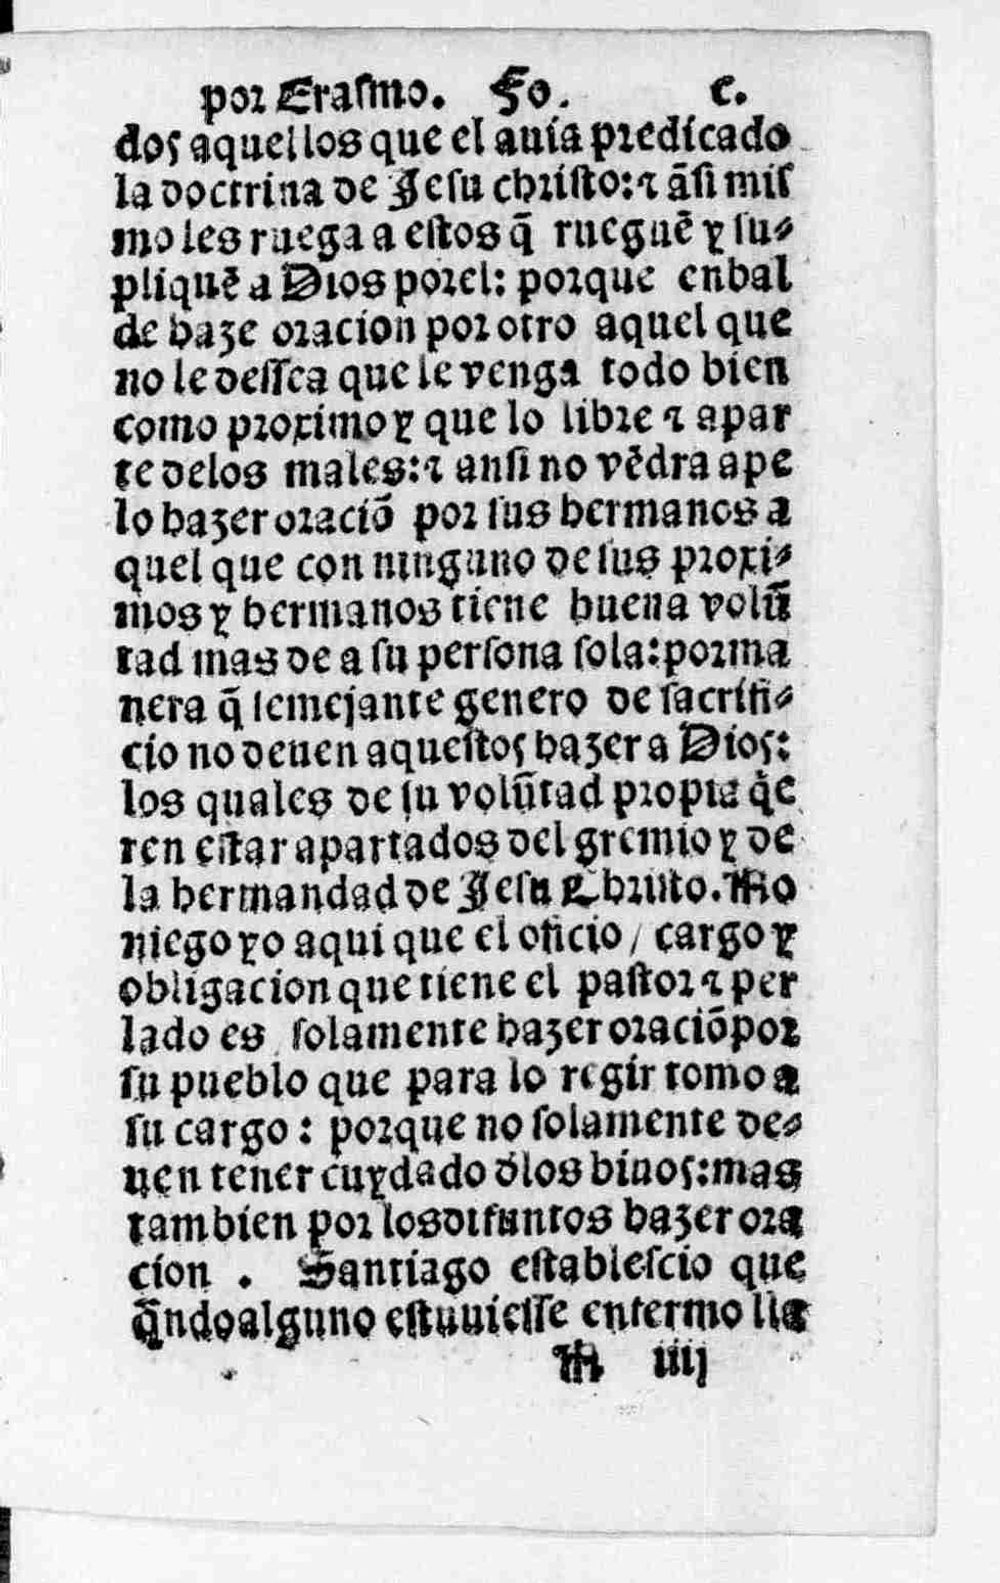 por Erasmo. Fo. c.
dos aquellos que el auia predicado
la doctrina de Jesu christo: ⁊ ãsi mis
mo les ruega a estos q̃ rueguẽ y su-
pliquẽ a Dios porel: porque enbal
de haze oracion por otro aquel que
no le dessea que le venga todo bien
como proximo y que lo libre ⁊ apar
te delos males: ⁊ ansi no vẽdra a pe
lo hazer oraciõ por sus hermanos a
quel que con ninguno de sus proxi-
mos y hermanos tiene buena volũ
tad mas de a su persona sola: por ma
nera q̃ semejante genero de sacrifi-
cio no deuen aquestos hazer a Dios:
los quales de su volũtad propia q̃e
ren estar apartados del gremio y de
la hermandad de Jesu Christo. No
niego yo aqui que el oficio / cargo y
obligacion que tiene el pastor ⁊ per
lado es solamente hazer oraciõ por
su pueblo que para lo regir tomo a
su cargo: porque no solamente de-
uen tener cuydado d̃los biuos: mas
tambien por los difuntos hazer ora
cion. Santiago establescio que
q̃ndo alguno estuuiesse enfermo lla
M iiij